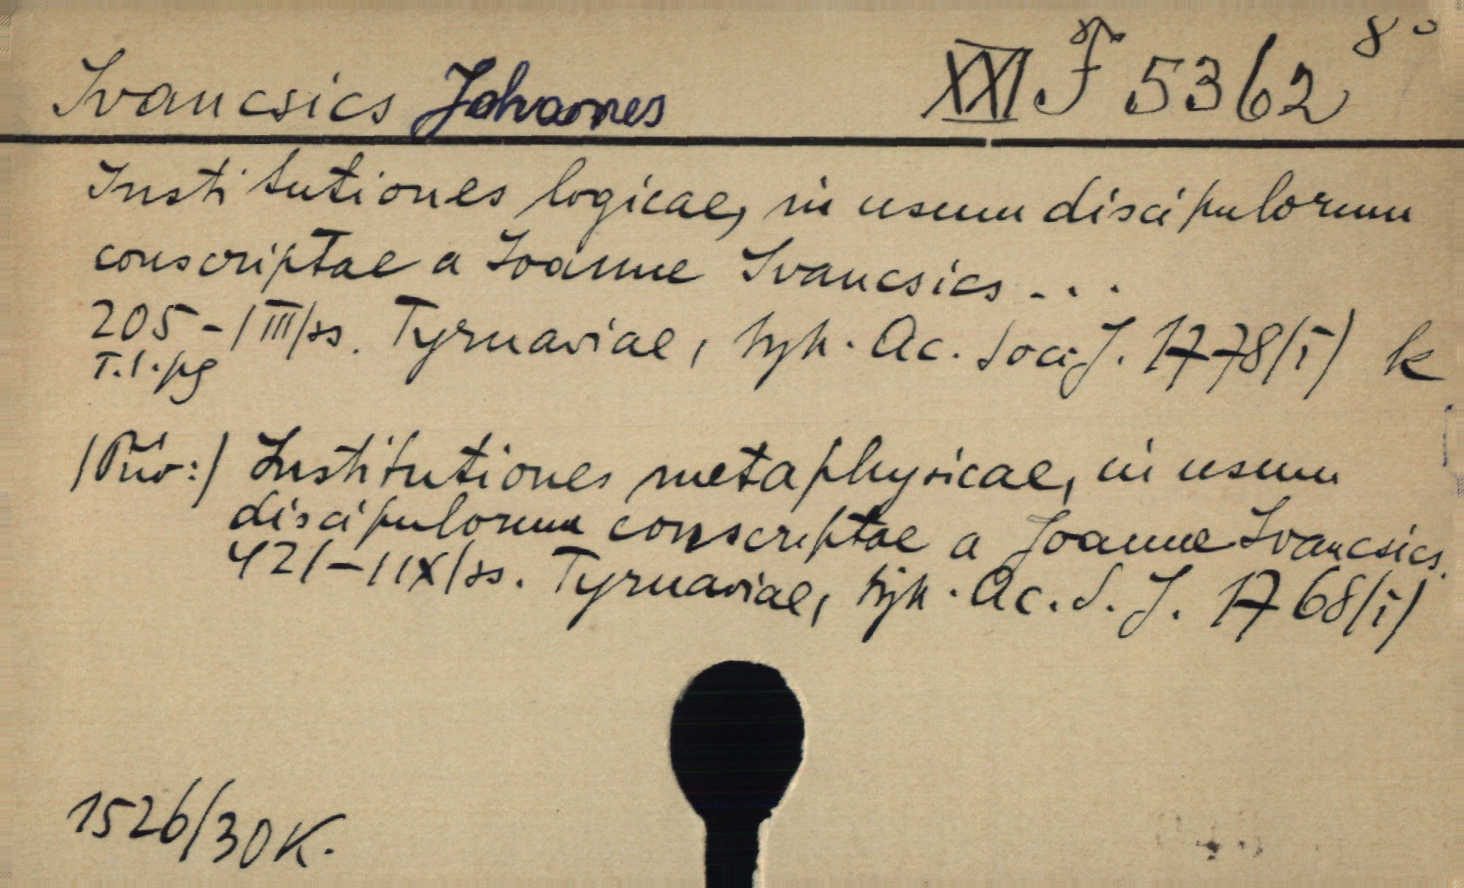 Ivancsics Johannes XXI F 5362 8°
Institutiones logicae, in usum discipulorum
conscriptae a Joanne Ivancsics ...
205-/III/ss. Tyrnaviae, typ. Ac. Soc. J. 1778/i/ k
T.1.pg
/Priv:/ Institutiones metaphysicae, in usum
discipulorum conscriptae a Joanne Ivancsics.
421-/IX/ss. Tyrnaviae, typ. Ac. S. J. 1768/i/
1526/30K.